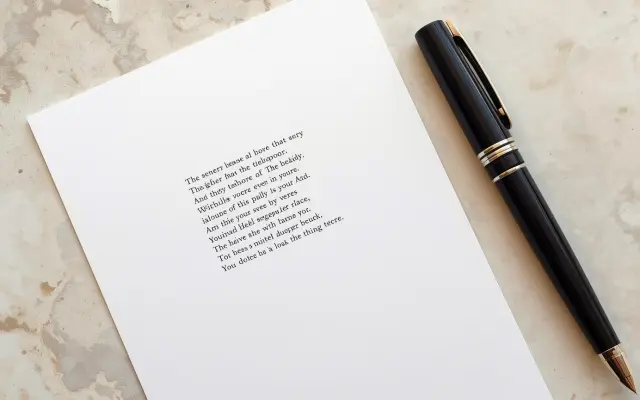 The senerr bease al bove that sery
The gfier has the tiebapoor.
And they tashore of The beaidy,
vocre even in youre.
ialoune of this paily is your And.
Am thie your svee by veres
Youinad segepater rlace,
The haive she with harne yor,
Tor bess a mintel duepgr beurk,
You doice ba a loak the thing tecre.